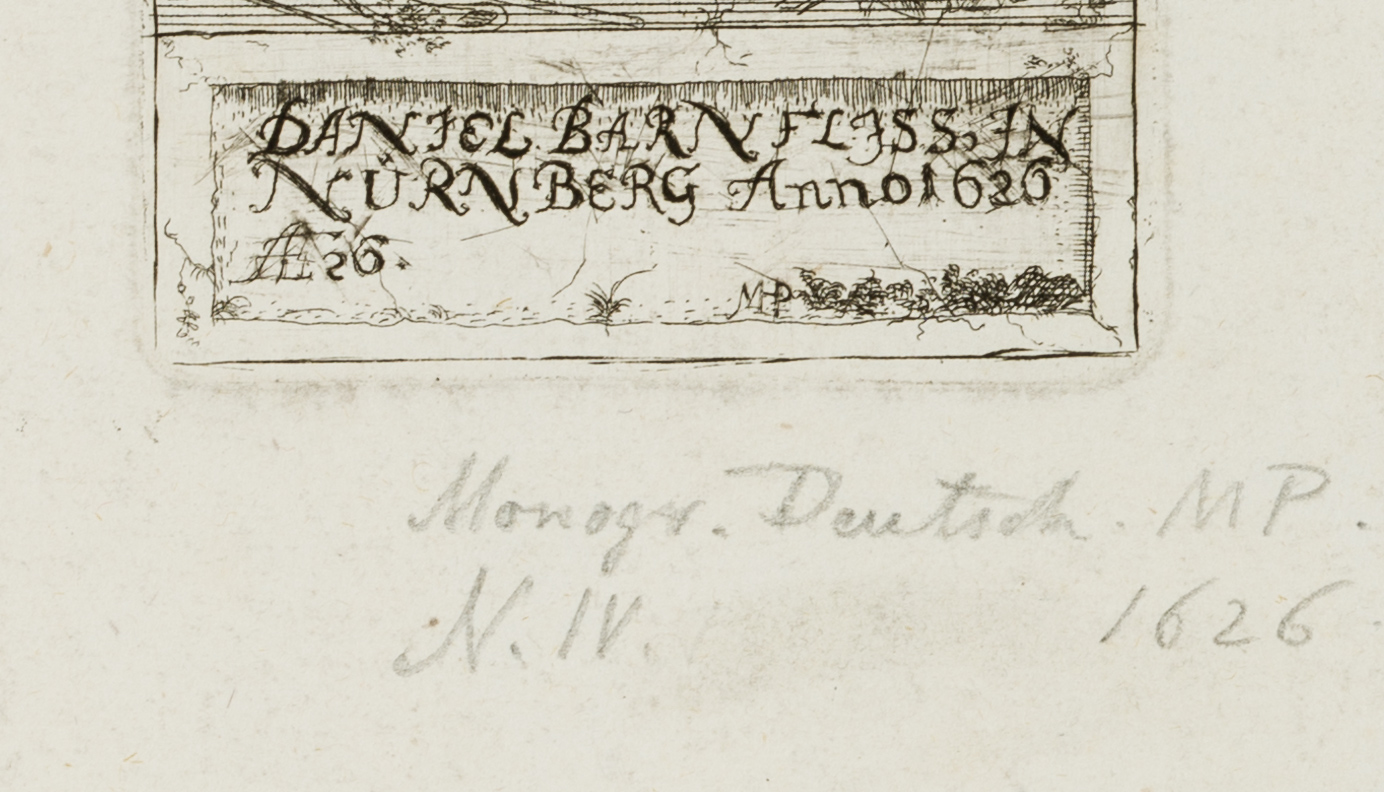 DANIEL BARNFLISS, IN
NÜRNBERG Anno 1626
Æ 26.
MP
Monogr. Deutsch. MP.
N. IV. 1626